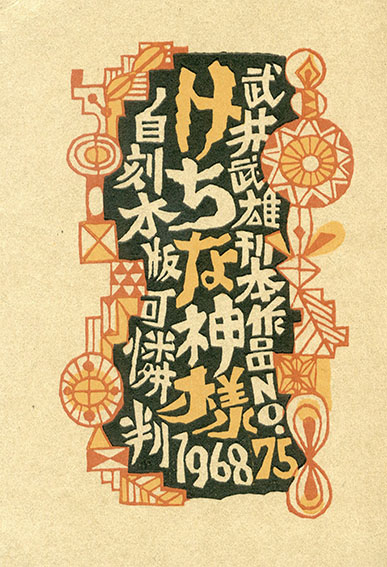 武井武雄刊本作品NO.75
けちな神様
自刻木版可憐判
1968